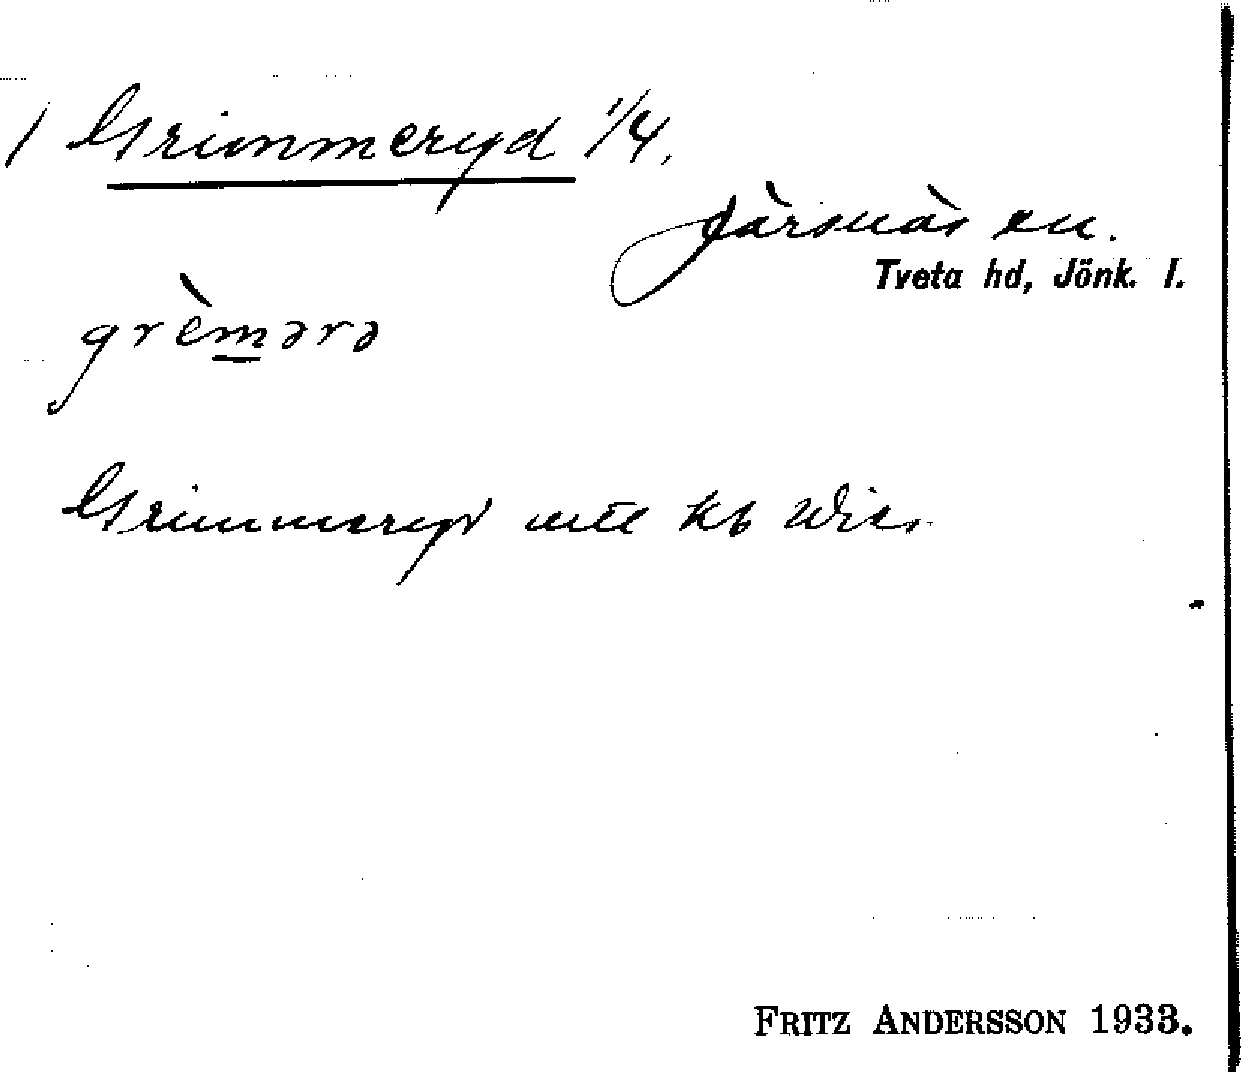 / Grimmeryd 1/4.
Järsnäs sn.
Tveta hd, Jönk. l.
grèmərə
Grimmeryd kb
FRITZ ANDERSSON 1933.